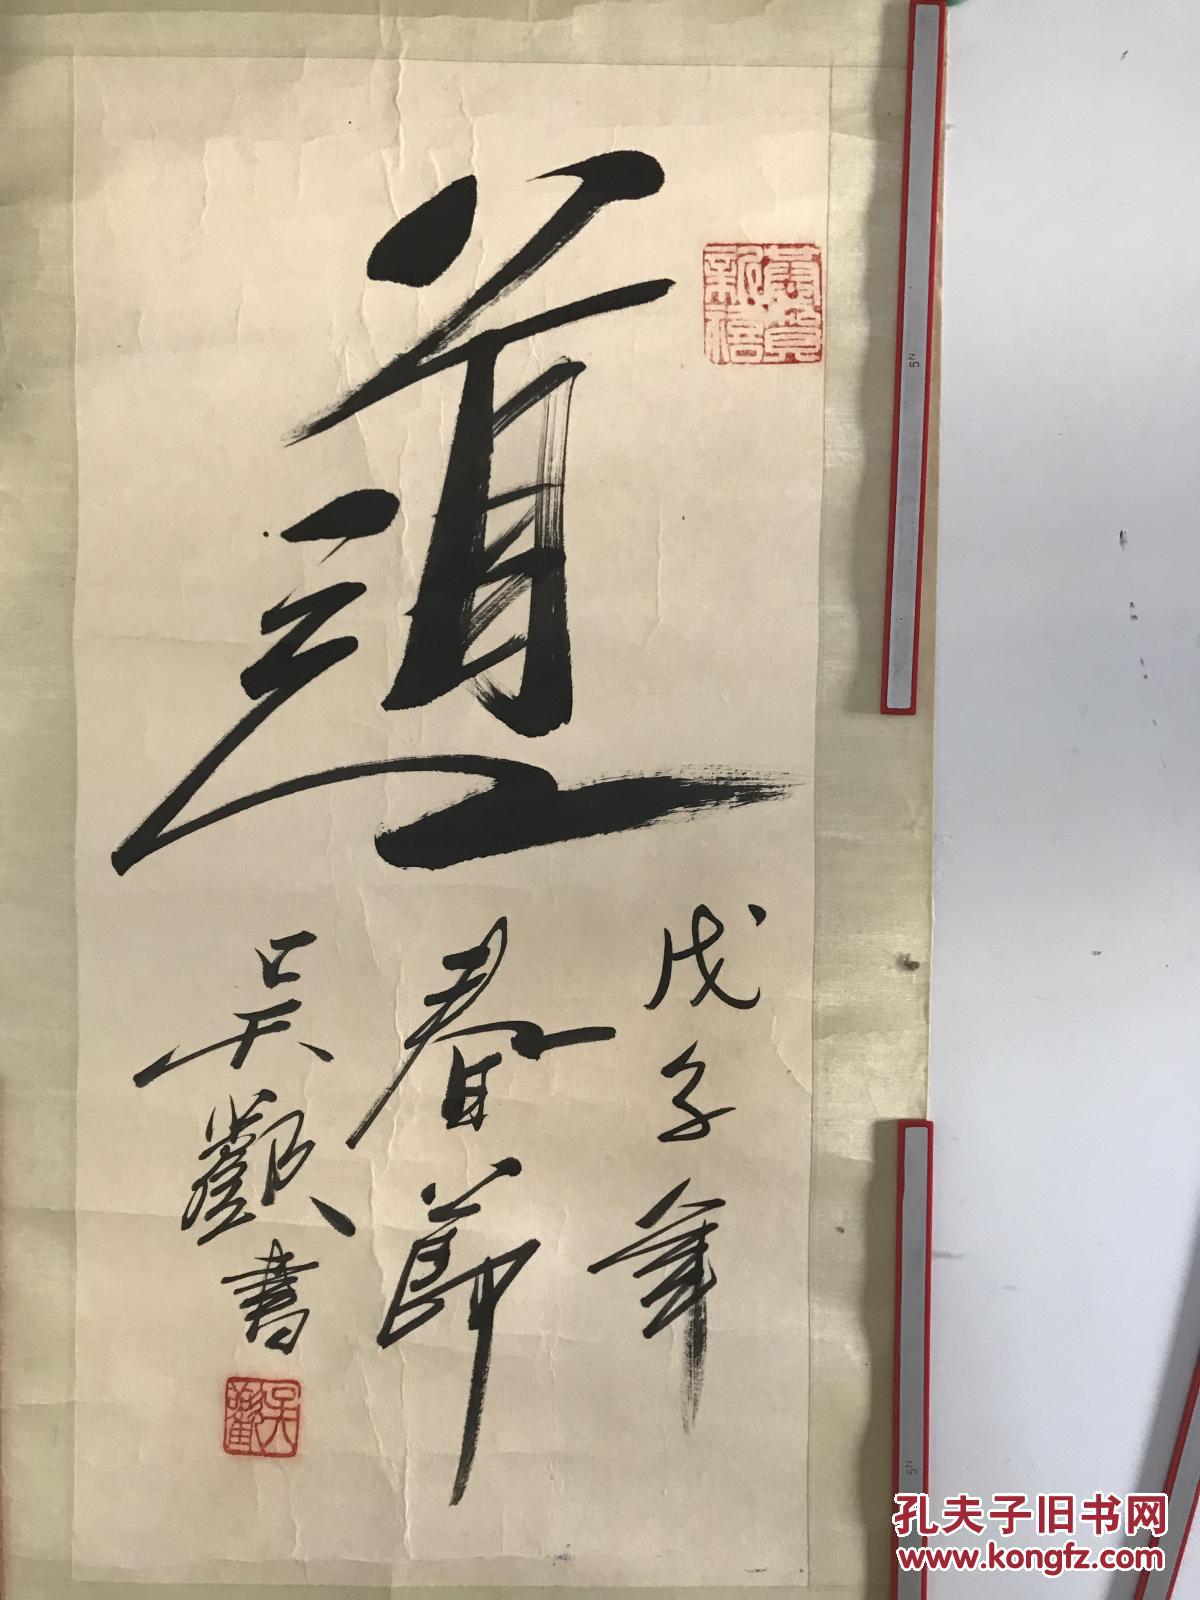 道
戊子年
春節
吴歡書
恭賀新禧
吴歡
5N
5N
孔夫子旧书网
www.kongfz.com